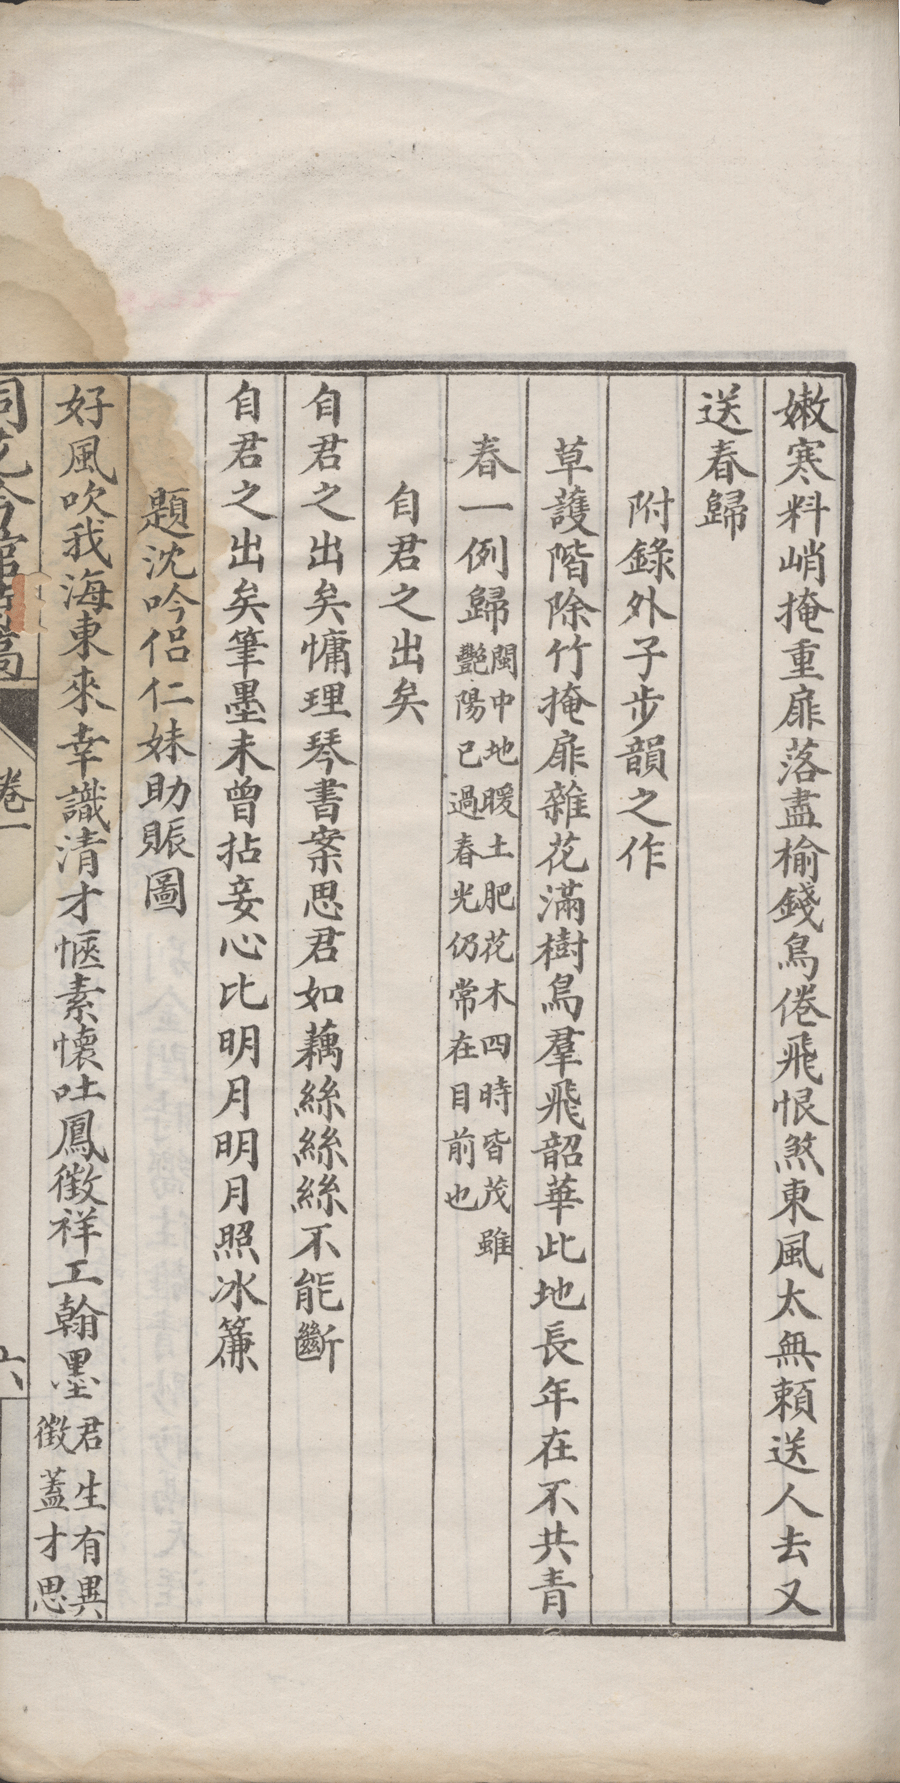 嫩寒料峭掩重扉落盡榆錢鳥倦飛恨煞東風太無賴送人去又
送春歸
附錄外子步韻之作
草護階除竹掩扉雜花滿樹鳥羣飛韶華此地長年在不共青
春一例歸閩中地暖土肥花木四時皆茂雖
艷陽已過春光仍常在目前也
自君之出矣
自君之出矣慵理琴書案思君如藕絲絲絲不能斷
自君之出矣筆墨未曾拈妾心比明月明月照冰簾
題沈吟侶仁妹助賑圖
好風吹我海東來幸識清才愜素懷吐鳳徵祥工翰墨君生有異
徵蓋才思
桐花吟館詩稿
卷一
六